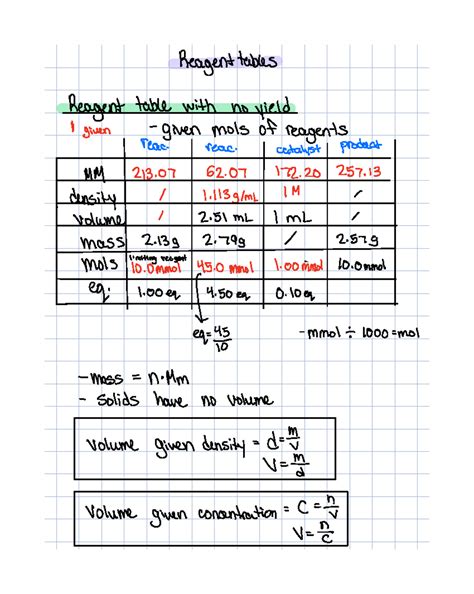 Reagent tables
Reagent table with no yield
! given - given mols of reagents
reac. reac. catalyst product
MM 213.07 62.07 172.20 257.13
density / 1.113 g/mL 1 M /
volume / 2.51 mL 1 mL /
mass 2.13 g 2.79g / 2.57g
limiting reagent
mols 10.0 mmol 45.0 mmol 1.00 mmol 10.0 mmol
eq. 1.00 eq 4.50 eq 0.10 eq
eq = 45/10 - mmol ÷ 1000 = mol
- mass = n·Mm
- Solids have no volume
Volume given density = d = m/v
V = m/d
Volume given concentration = C = n/v
V = n/C